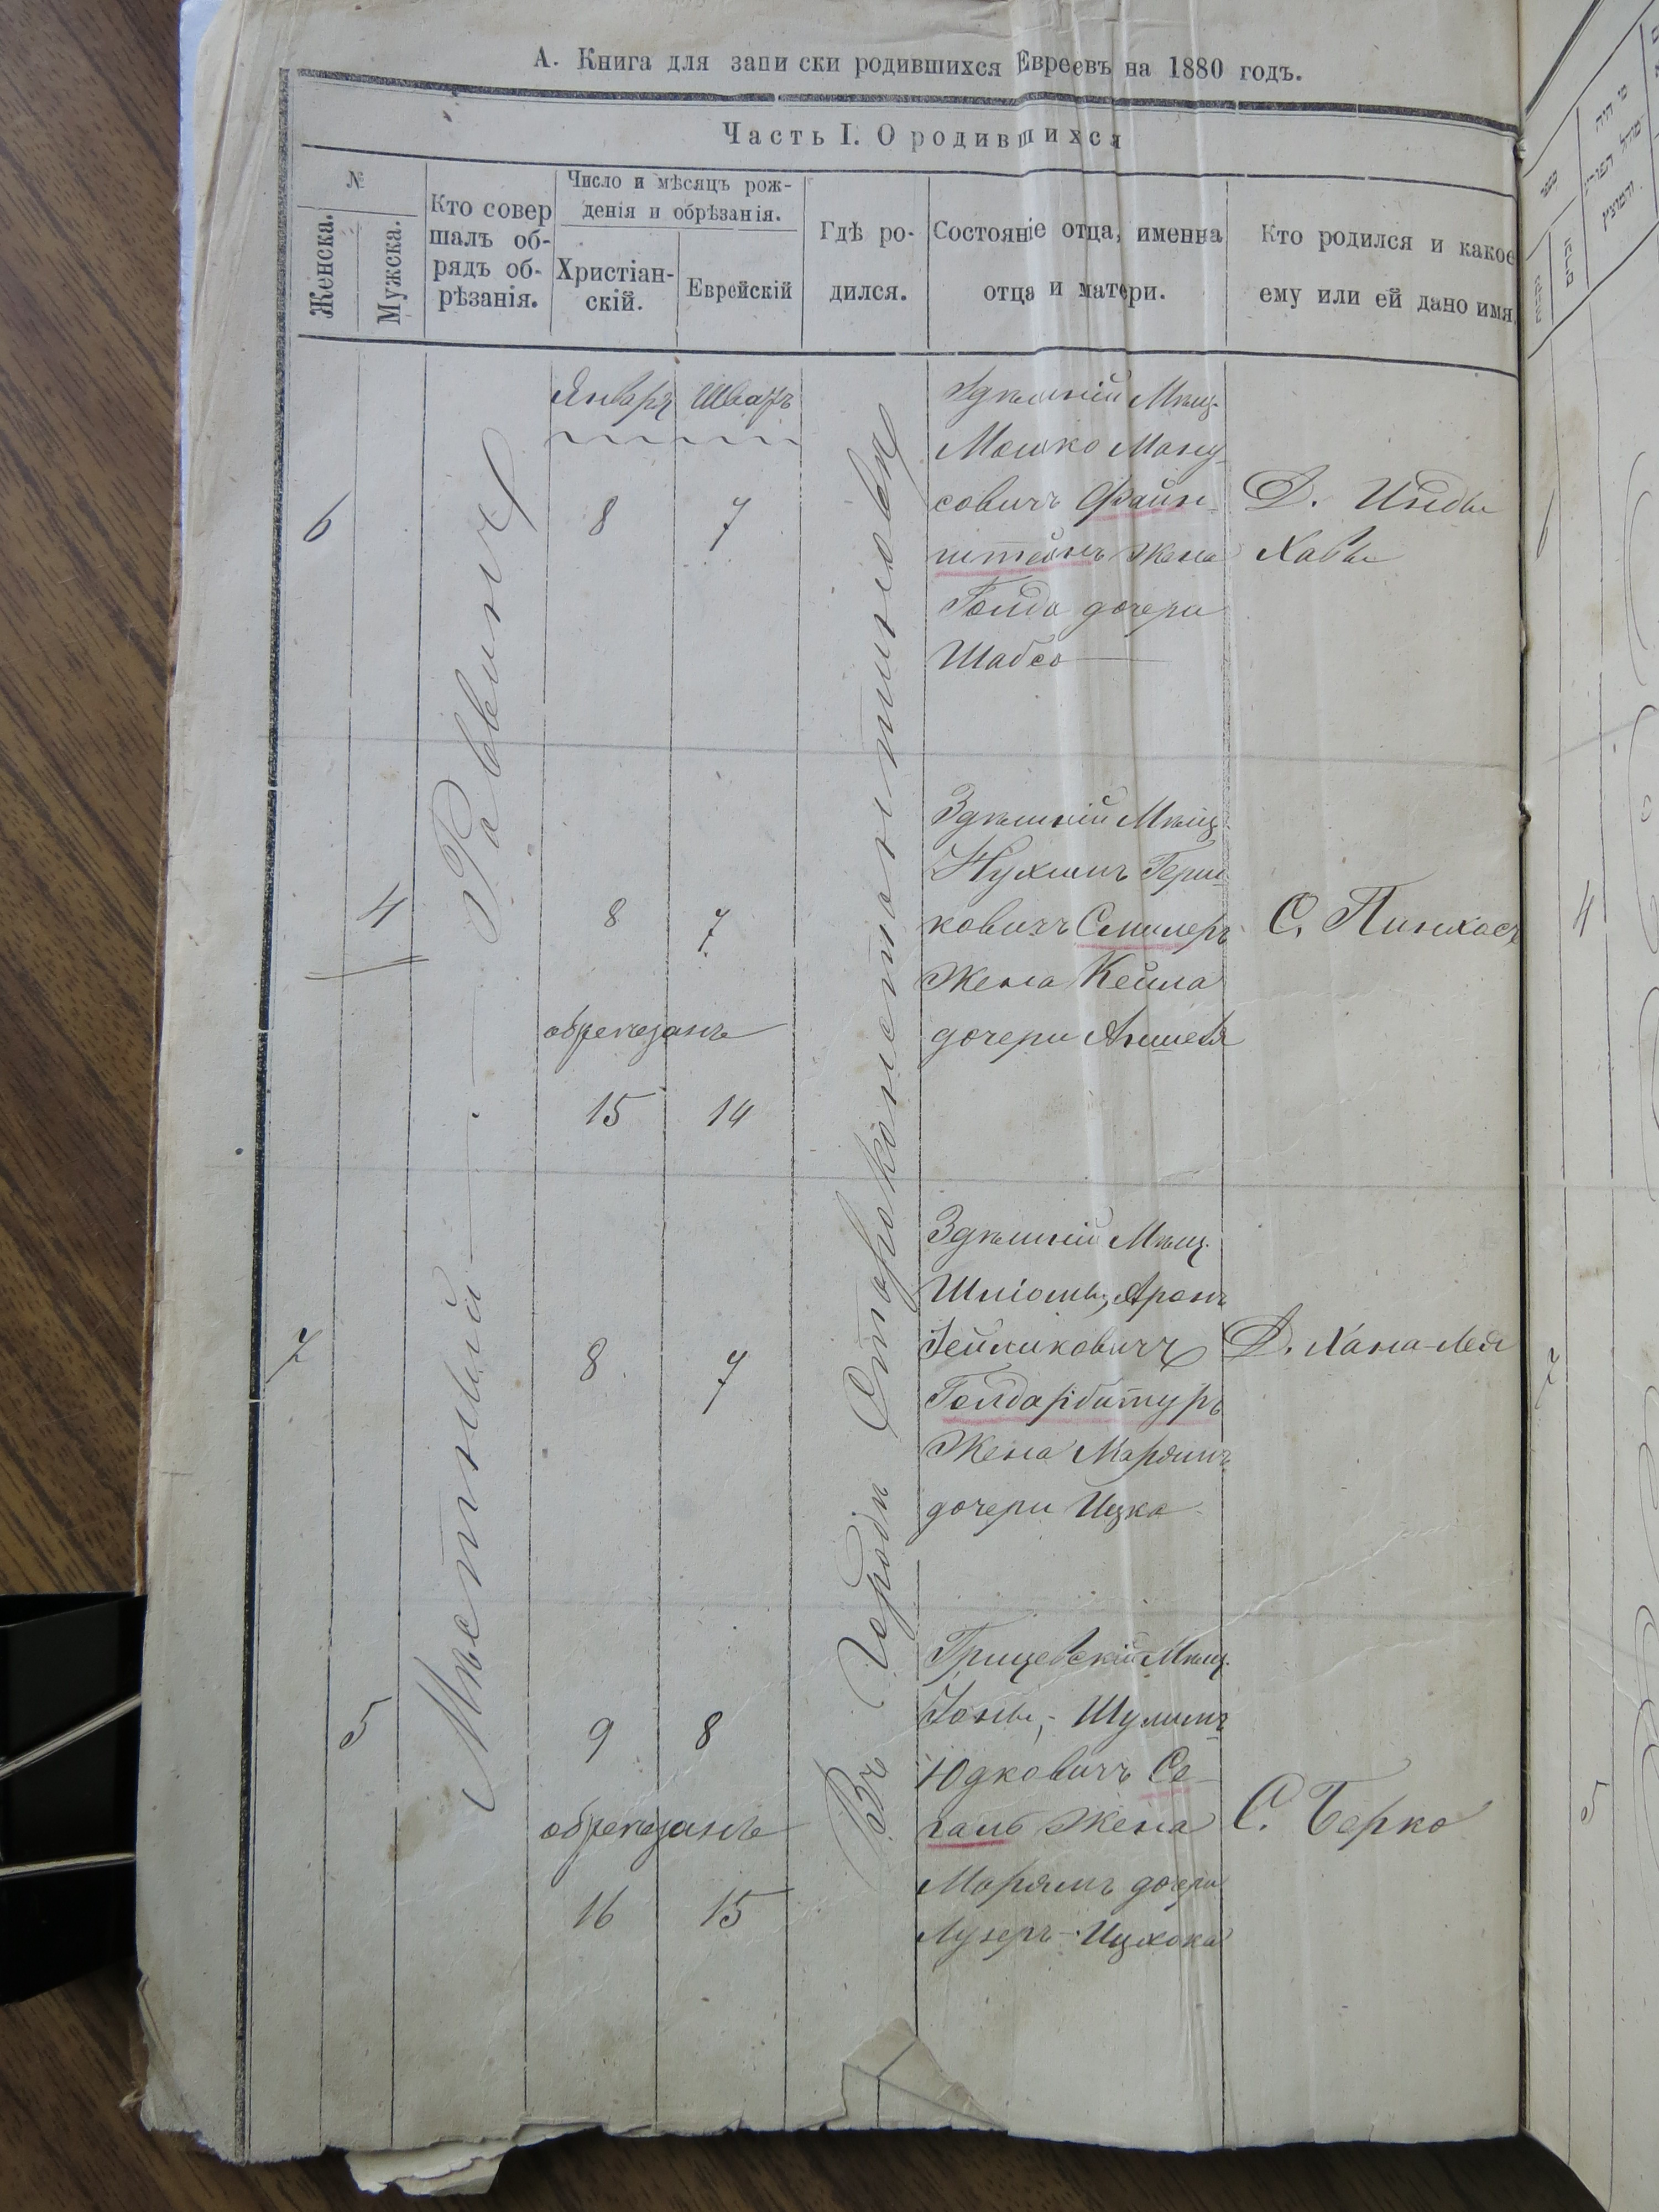 А. Книга для записки родившихся Евреевъ на 1880 годъ.
Часть I. О родившихся
№
Женска.
Мужска.
Кто совер
шалъ об-
рядъ об-
рѣзанія.
Число и мѣсяцъ рож-
денія и обрѣзанія.
Христіан-
скій.
Еврейскій
Гдѣ ро-
дился.
Состояніе отца, именна
отца и матери.
Кто родился и какое
ему или ей дано имя
Мѣстный Раввинъ
Въ Городѣ Староконстантиновѣ
Январь Шватъ
6
8 7
Здѣшній Мѣщ.
Мошко Ману-
совичъ Файн-
штейнъ жена
Голда дочери
Шабса
Д. Инды
Хавы
4
8 7
обрѣзанъ
15 14
Здѣшній Мѣщ.
Нухимъ Герш-
ковичъ
Жена Кейла
дочери Аншеля
С. Пинхасъ
7
8 7
Здѣшній Мѣщ.
Шліомы, Аронъ
Зейликовичъ
Жена
дочери Ицка
Д. Хана-Лея
5
9 8
обрѣзанъ
16 15
Грицевскій Мѣщ.
Іоны, - Шулимъ
Юдковичъ Се-
галь Жена
Марямъ дочери
Лузеръ-Ицхока
С. Берко
4
7
5